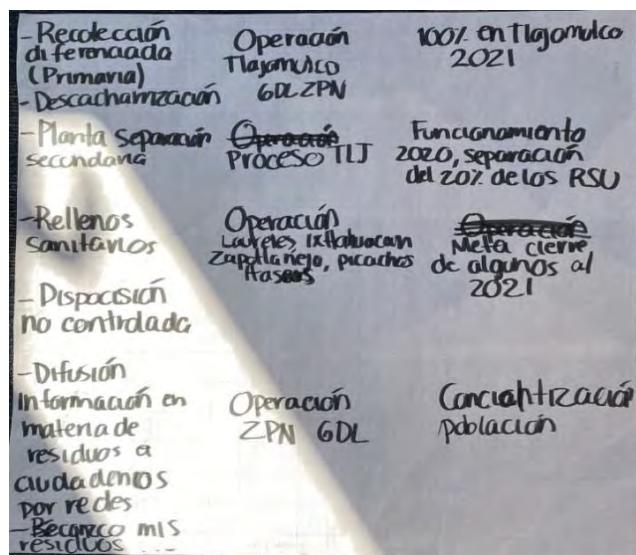 -Recolección
diferenciada
(Primaria)
-Descacharrización
Operación
Tlajomulco
GDL ZPN
100% en Tlajomulco
2021
-Planta separación
secundaria
Operació
Proceso TLJ
Funcionamiento
2020, separación
del 20% de los RSU
-Rellenos
sanitarios
Operación
Laureles, Ixtlahuacan
Zapotlanejo, picachos
Operación
Meta cierre
de algunos al
2021
- Dispocisión
no controlada
-Difusión
Información en
materia de
residuos a
ciudadanos
por redes
Operación
ZPN GDL
población
mis
residuos ...